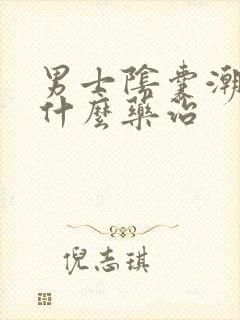 男士陰囊潮
什麼藥治
倪志琪